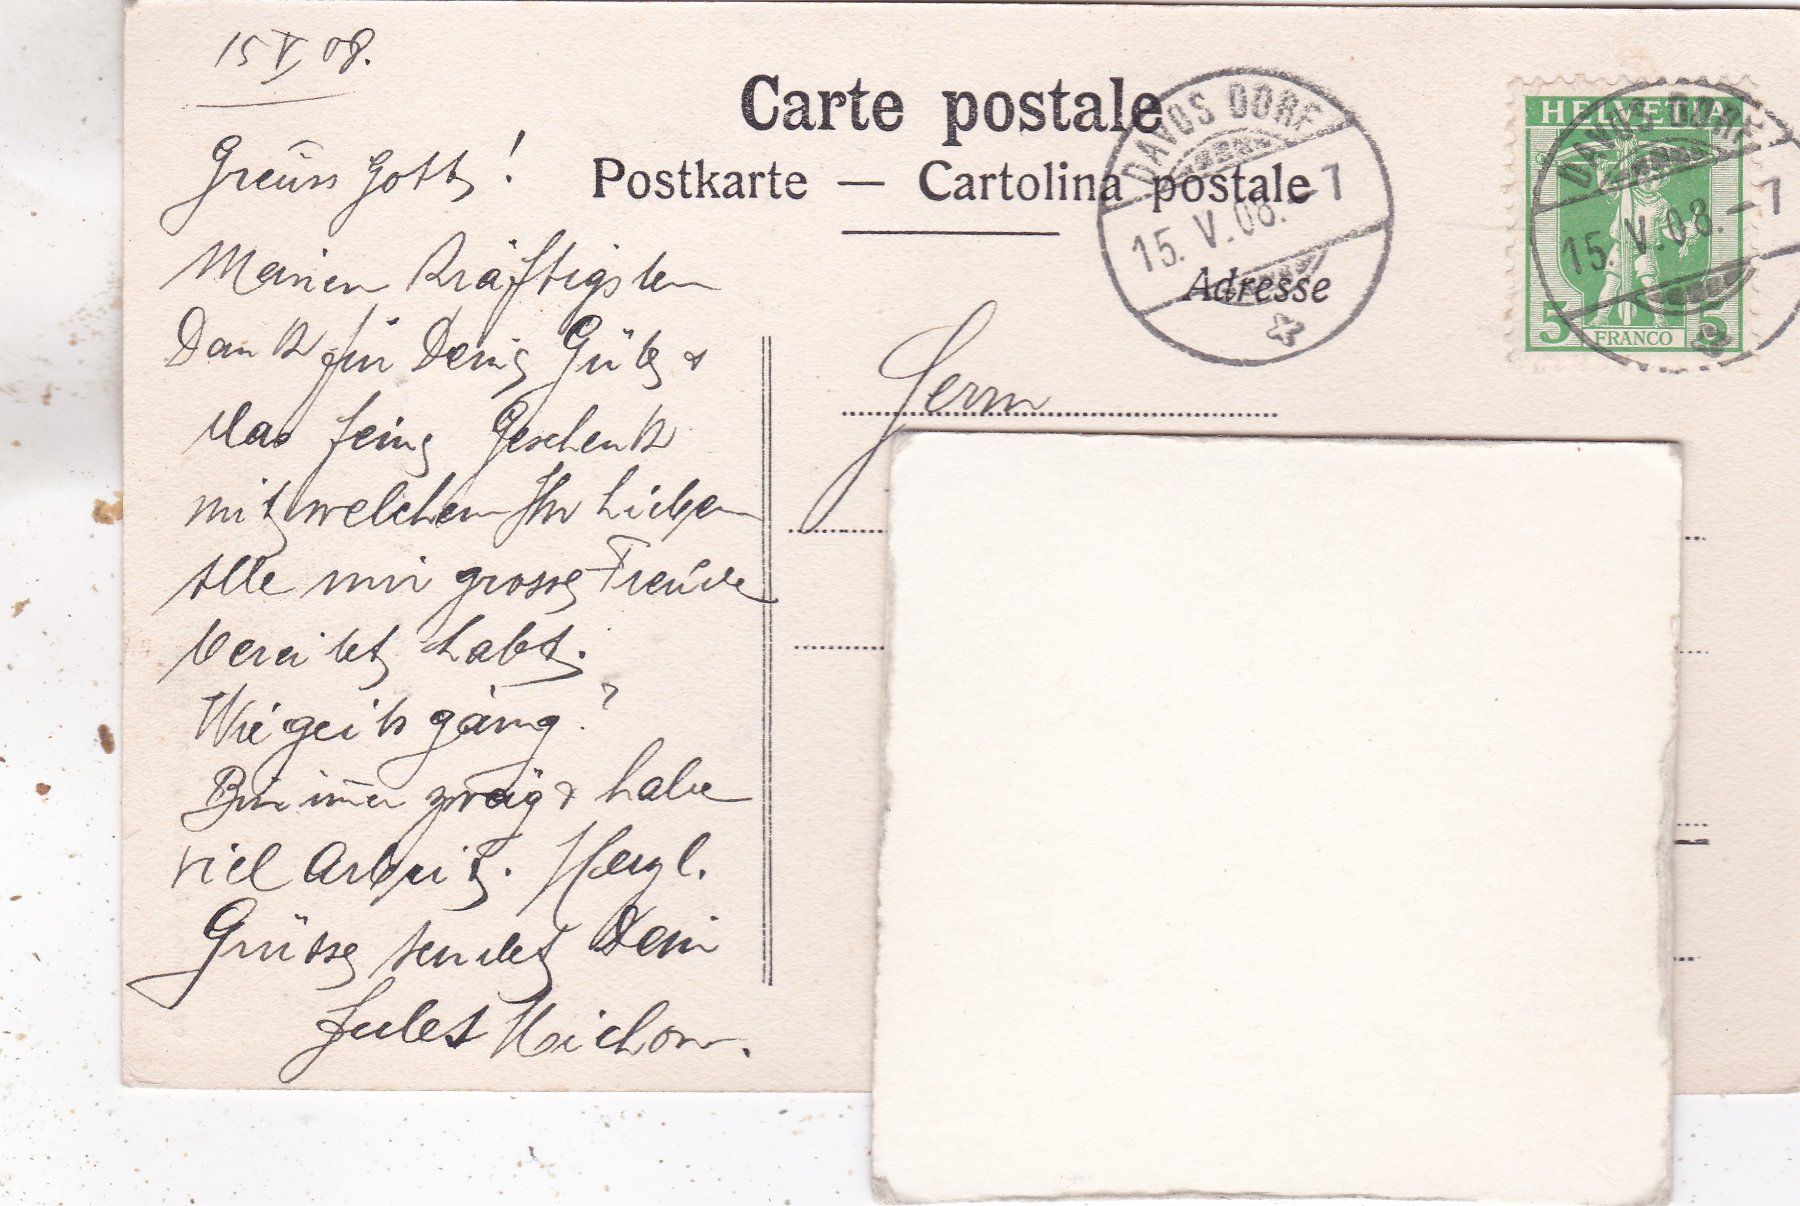 15 V 08.
Greuss Gott!
Meinen kräftigsten
Dank für Deine Güte &
das feine Geschenk
mit welchem Ihr Lieben
Alle mir grosse Freude
bereitet habt.
Wie geits gäng?
Bin immer zwäg & habe
viel Arbeit. Herzl.
Grüsse sendet Dein
Jules
Carte postale
Postkarte — Cartolina postale
Adresse
Herrn
DAVOS DORF
15. V. 08. - 1
HELVETIA
5 FRANCO 5
DAVOS DORF
15. V. 08. - 1